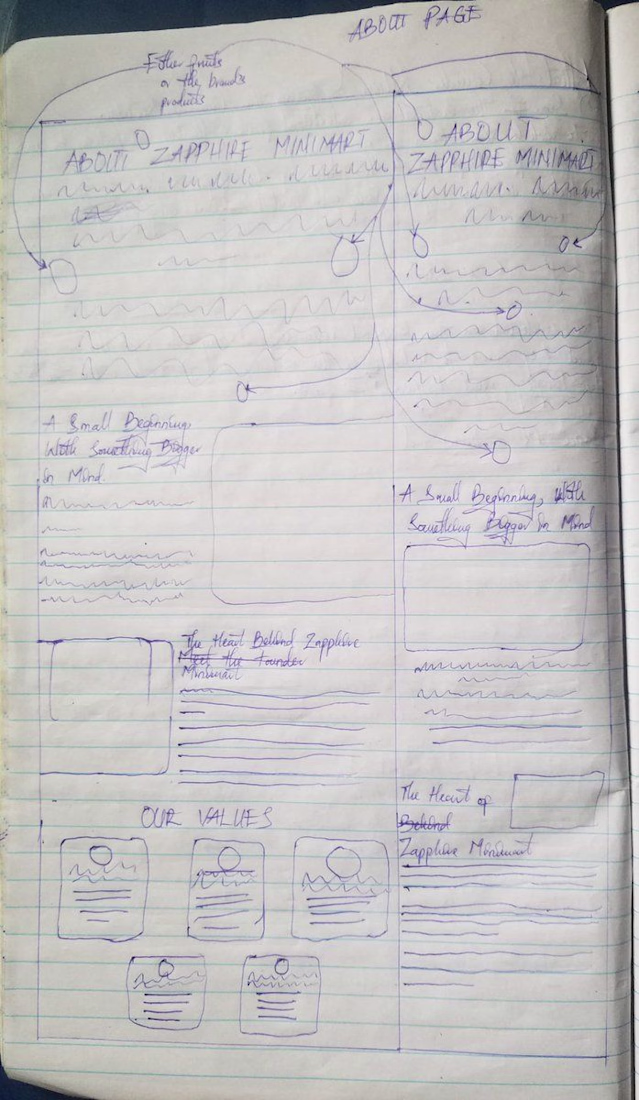 ABOUT PAGE
Either fruits
or the brand's
products
ABOUT ZAPPHIRE MINIMART
A Small Beginning,
With Something Bigger
in Mind.
The Heart Behind Zapphire
Meet the Founder
Minimart
OUR VALUES
ABOUT
ZAPPHIRE MINIMART
A Small Beginning, With
Something Bigger in Mind
The Heart of
Behind
Zapphire Minimart